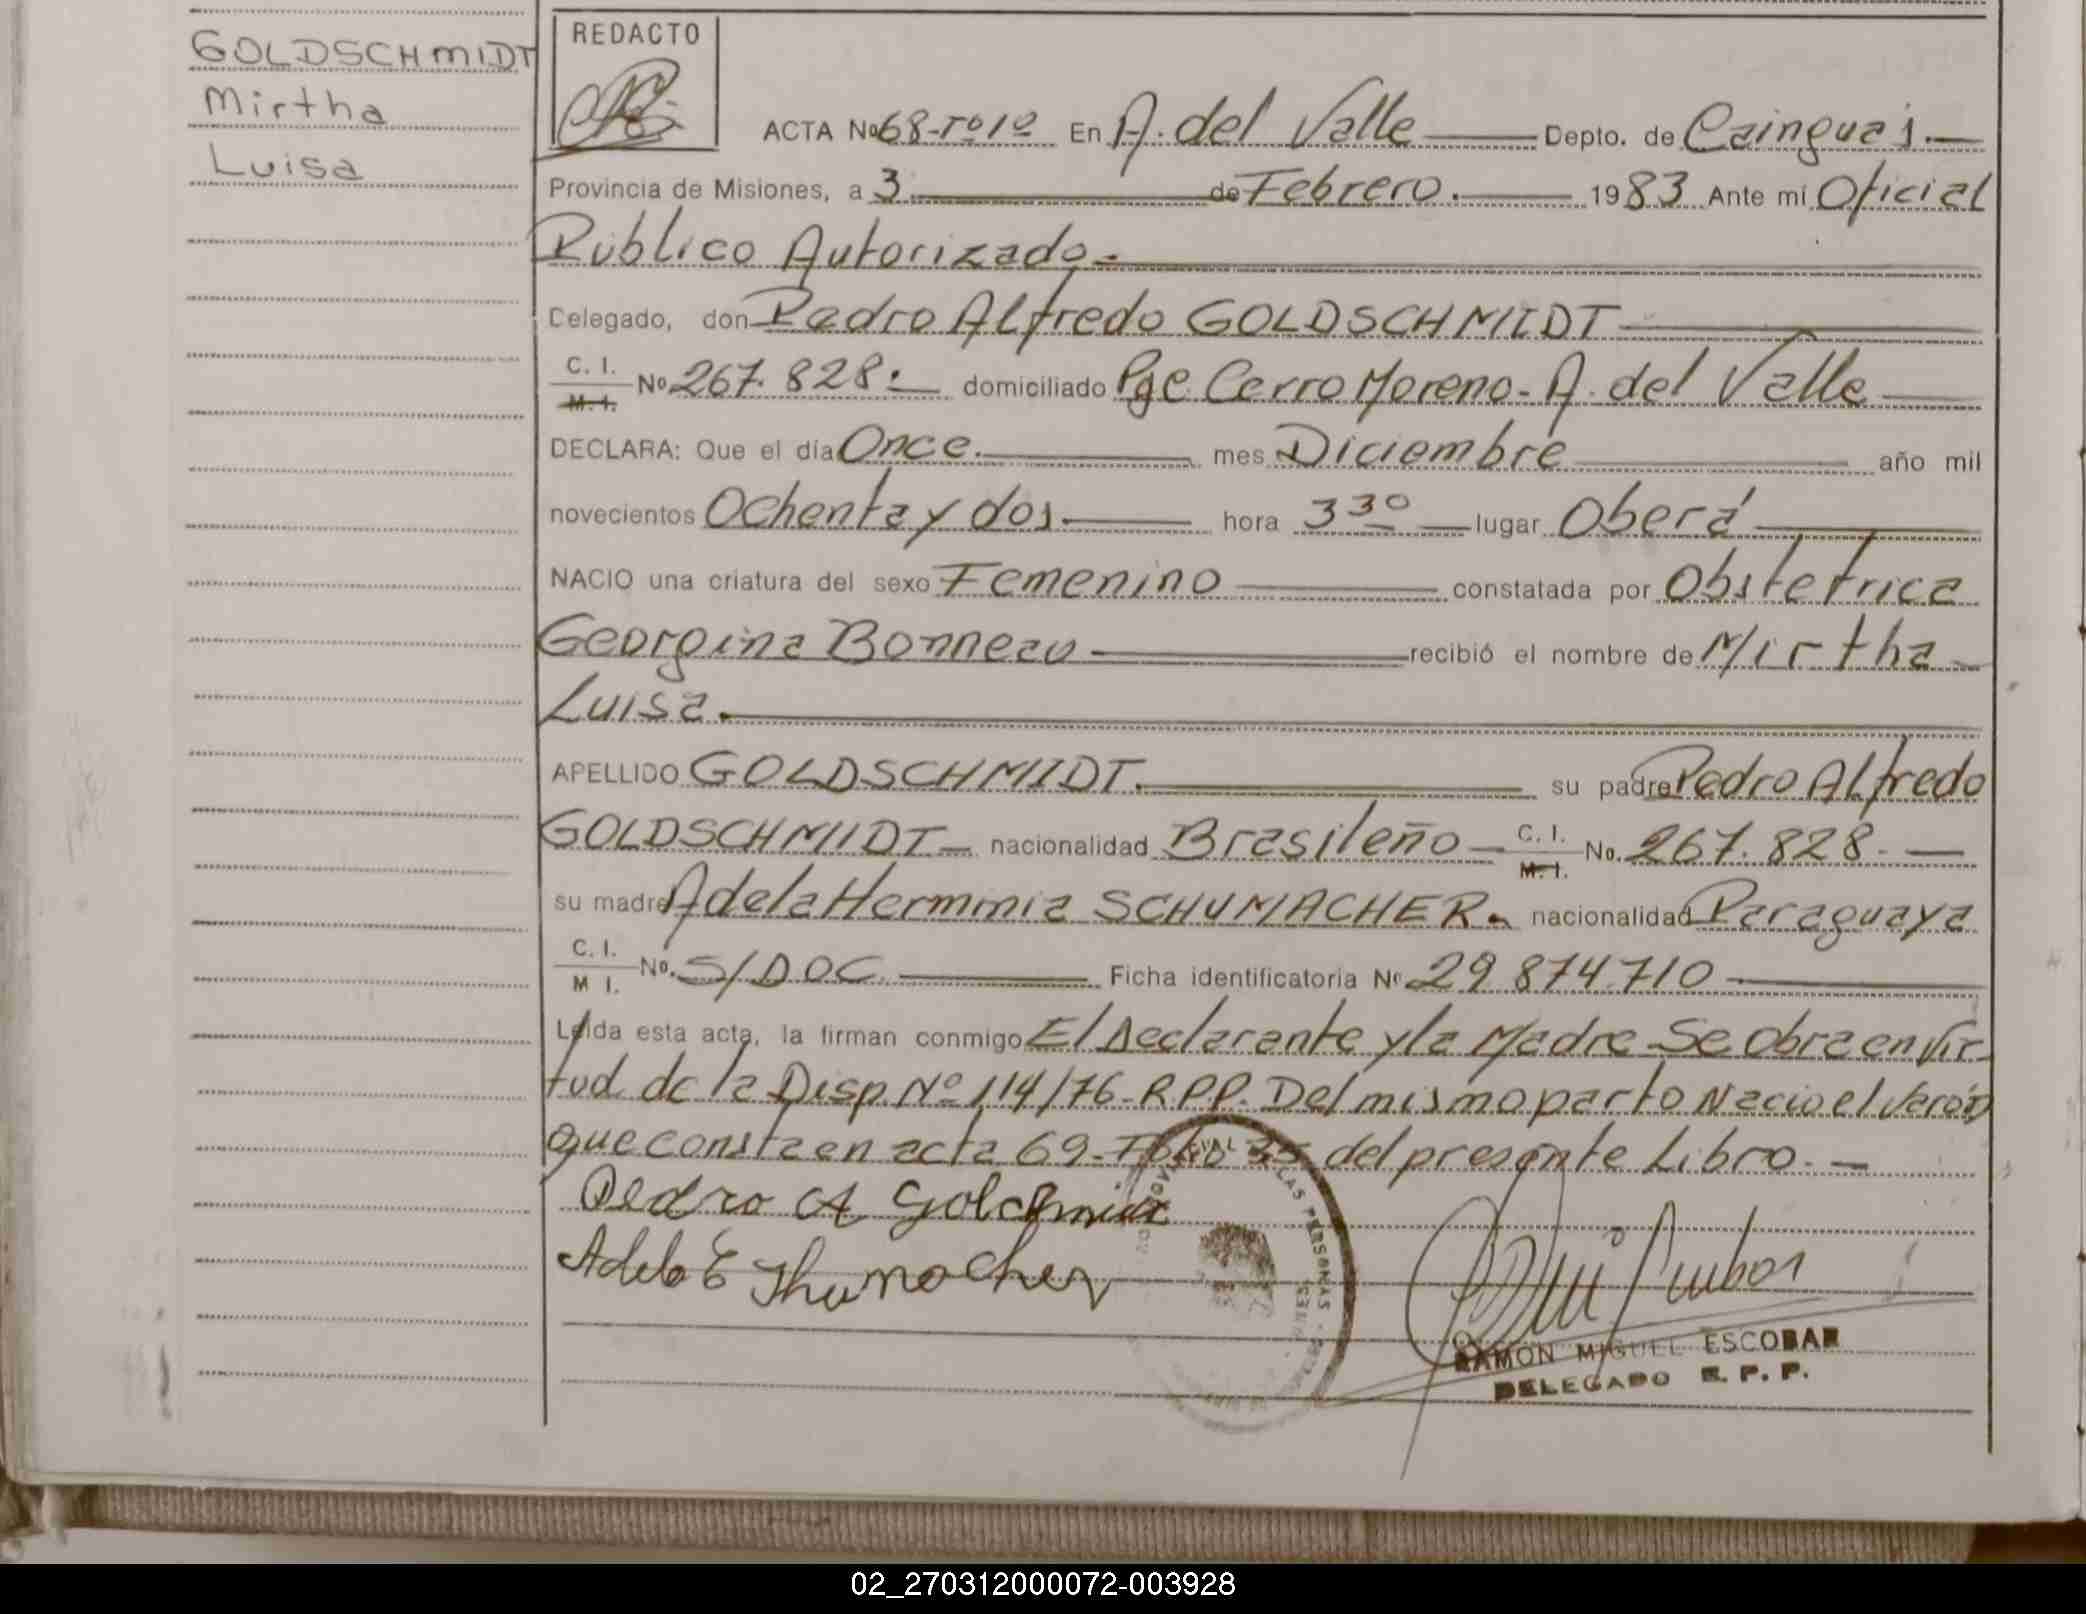 GOLDSCHMIDT
Mirtha
Luisa
REDACTO
ACTA No 68-Tº1º En A. del Valle Depto. de Cainguás.
Provincia de Misiones, a 3 de Febrero. 1983 Ante mi Oficial
Público Autorizado.
Delegado, don Pedro Alfredo GOLDSCHMIDT
C. I. M. I. No 267.828. domiciliado Pje. Cerro Moreno - A. del Valle
DECLARA: Que el día Once. mes Diciembre año mil
novecientos Ochenta y dos. hora 3 30 lugar Oberá
NACIO una criatura del sexo Femenino constatada por Obstetrica
Georgina Bonneau recibió el nombre de Mirtha
Luisa.
APELLIDO GOLDSCHMIDT. su padre Pedro Alfredo
GOLDSCHMIDT nacionalidad Brasileño C. I. M. I. No. 267.828.
su madre Adela Herminia SCHUMACHER. nacionalidad Paraguaya
C. I. M I. No. S/DOC. Ficha identificatoria Nº 29.874.710
Leída esta acta, la firman conmigo El Declarante y la Madre Se Obra en Vir-
tud de la Disp. Nº 114/76-R.P.P. Del mismo parto Nacio el Varón
que consta en acta 69-Folio 35 del presente Libro.
Pedro A
Adela E
RAMON MIGUEL ESCOBAR
DELEGADO R. P. P.
02_270312000072-003928